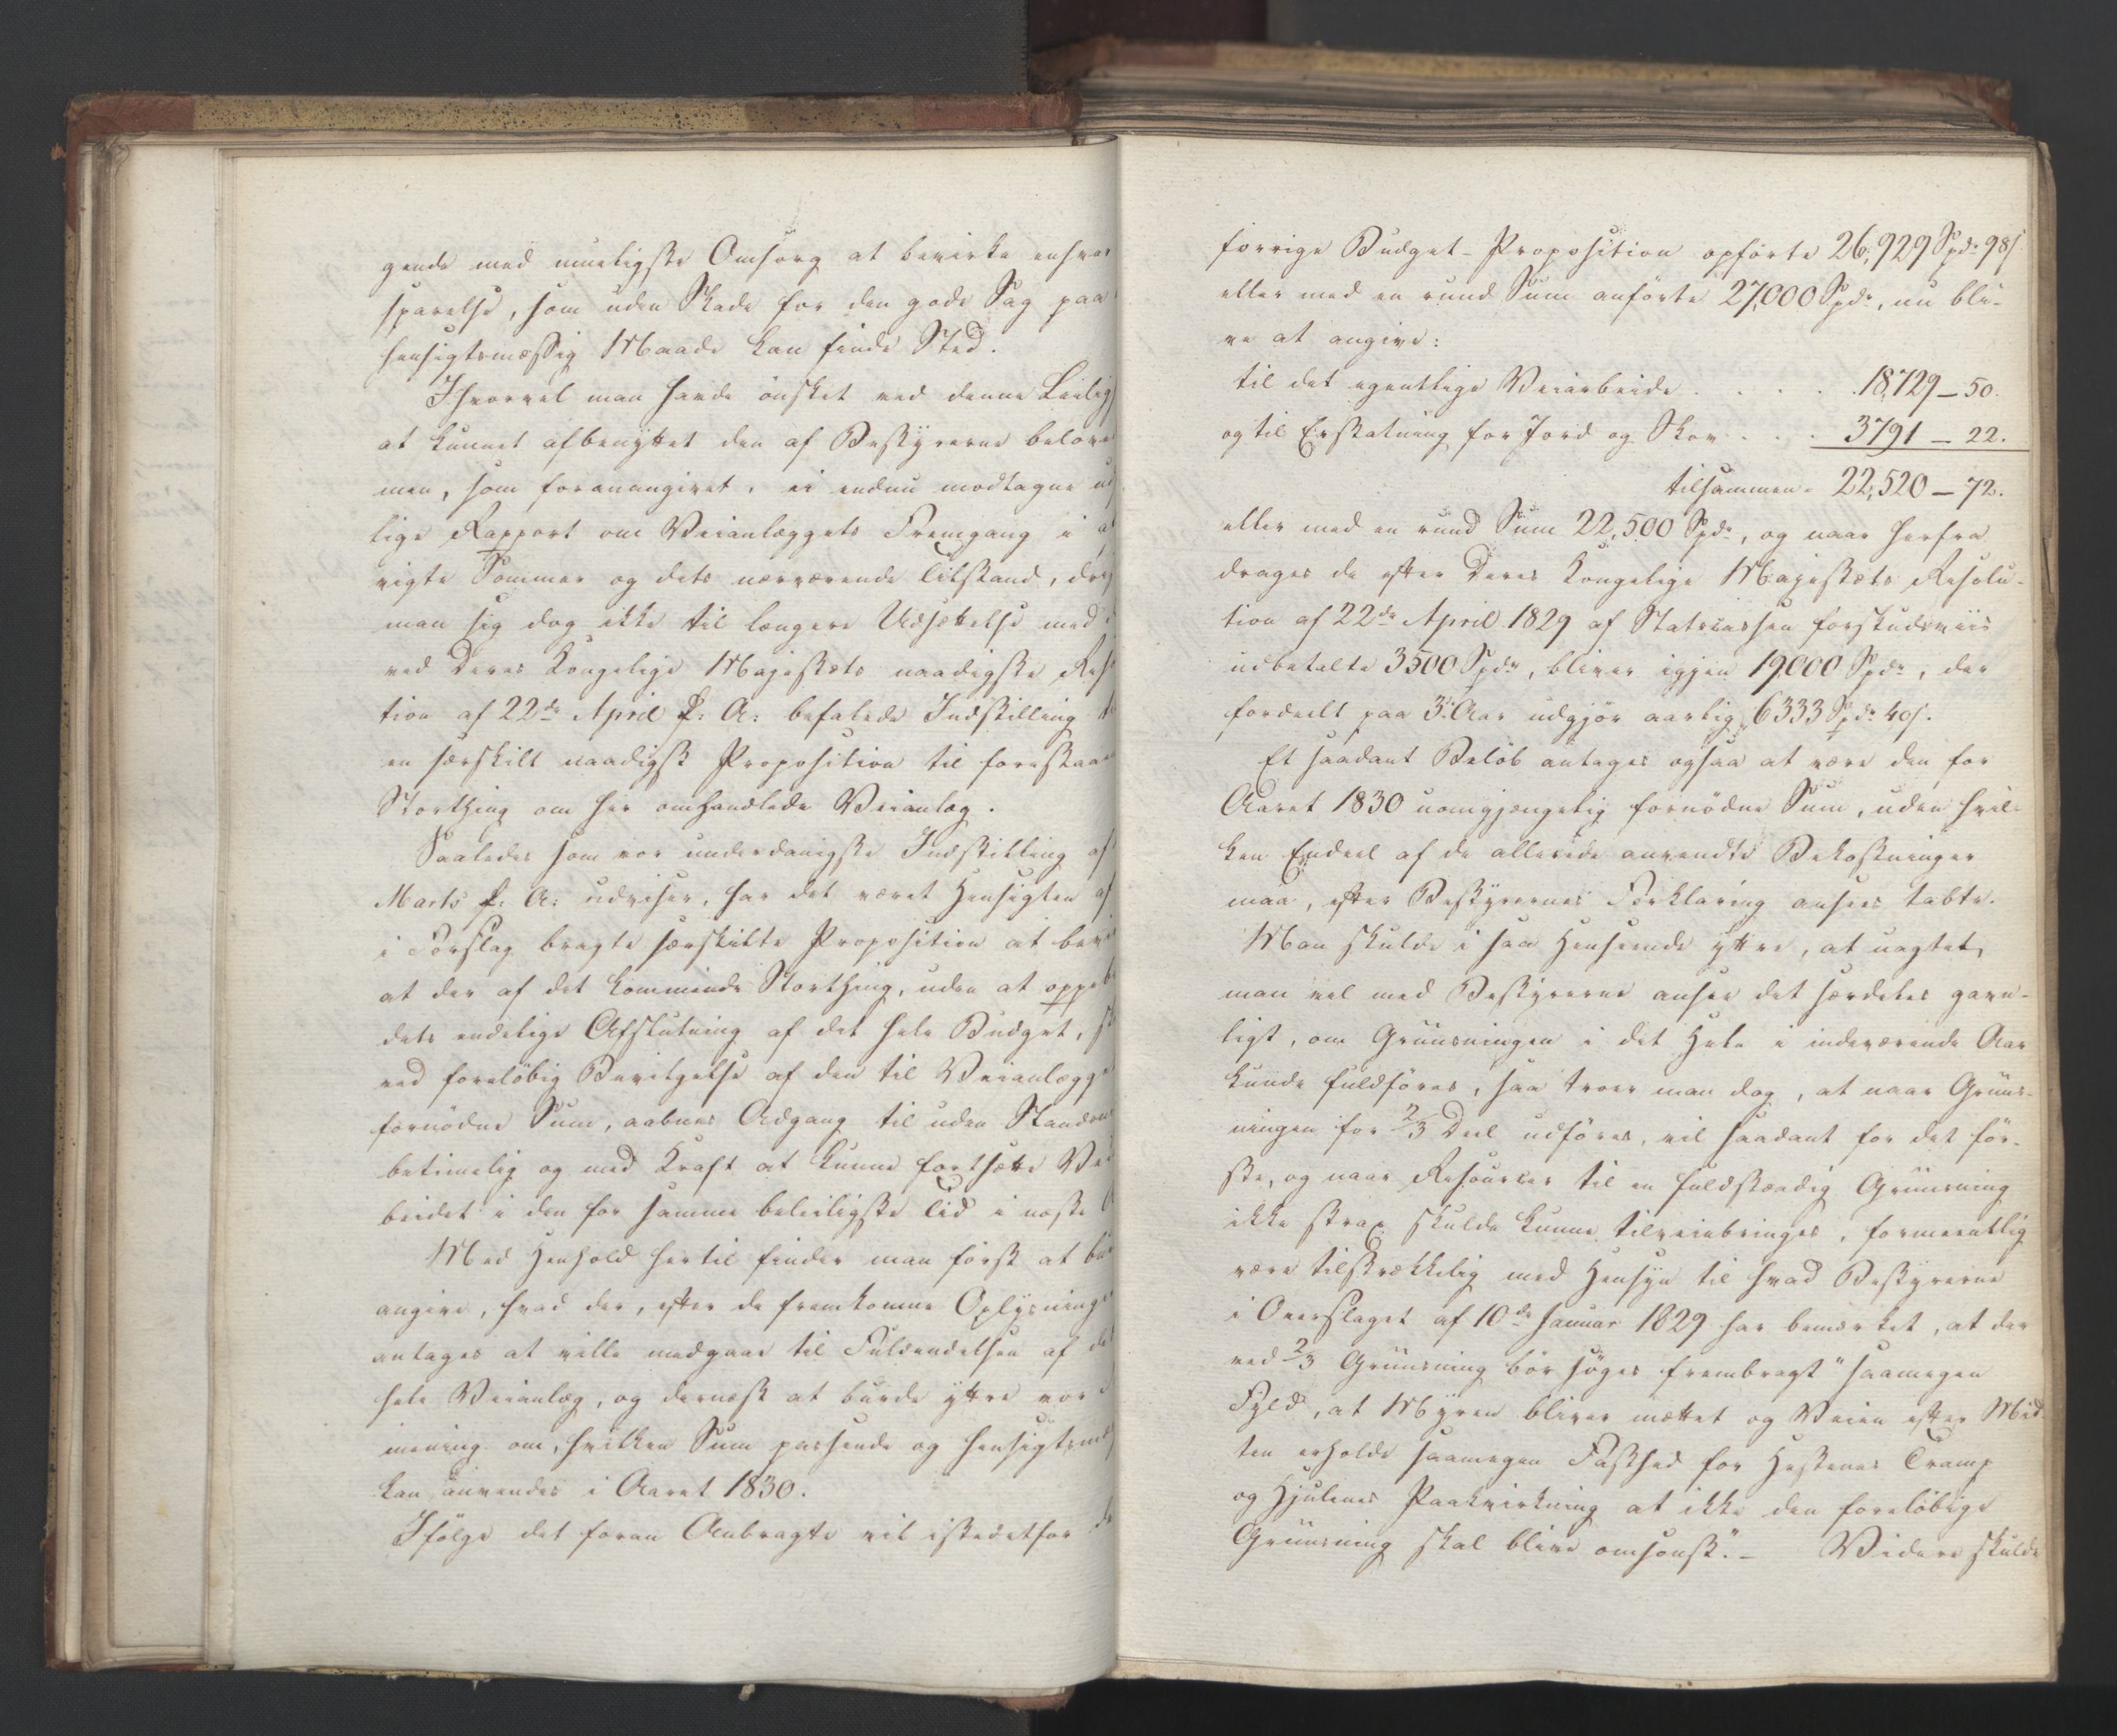 gende med mueligste Omsorg at bevirke enhver
sparelse, som uden Skade for den gode Sag paa
hensigtsmæssig Maade kan finde Sted.
Ihvorvel man havde ønsket ved denne Leilig
at kunnet afbenyttet den af Bestyrerne belove
men, som foranangivet, ei endnu modtagne ud
lige Rapport om Veianlæggets Fremgang i af
vigte Sommer og dets nærværende Tilstand, dri
man sig dog ikke til længere Udsættelse med
ved Deres Kongelige Majestæts naadigste Reso
tion af 22de April f: A: befalede Indstilling
en særskilt naadigst Proposition til forestaae
Storthing om her omhandlede Veianlæg.
Saaledes som vor underdanigste Indstilling af
Marts f: A: udviser, har det været Hensigten af
i Forslag bragte særskilte Proposition at bevi
at der af det kommende Storthing, uden at oppeb
dets endelige Afslutning af det hele Budget, sk
ved foreløbig Bevilgelse af den til Veianlægge
fornødne Sum, aabnes Adgang til uden Standsn
betimelig og med Kraft at kunne fortsætte Vei
beidet i den for samme beleiligste Tid i næste A
Med Henhold hertil finder man først at bur
angive, hvad der, efter de fremkomne Oplysninge
antages at ville medgaae til Fuldendelsen af det
hele Veianlæg, og dernæst at burde yttre vor
mening om, hvilken Sum passende og hensigtsmæs
kan anvendes i Aaret 1830.
Ifølge det foran Anbragte vil istedetfor de
forrige Budget-Proposition opførte 26,929 Spdr 98 s.
eller med en rund Sum anførte 27,000 Spdr, nu bli-
ve at angive:
til det egentlige Veiarbeide . . . . 18,729 – 50.
og til Erstatning for Jord og Skov . . . 3791 – 22.
tilsammen. 22,520 – 72.
eller med en rund Sum 22,500 Spdr, og naar herfra
drages de efter Deres Kongelige Majestæts Resolu-
tion af 22de April 1829 af Statscassen forskudsviis
udbetalte 3500 Spdr, bliver igjen 19,000 Spdr, der
fordeelt paa 3 Aar udgjør aarlig 6333 Spdr 40 s.
Et saadant Beløb antages ogsaa at være den for
Aaret 1830 uomgjængelig fornødne Sum, uden hvil-
ken Endeel af de allerede anvendte Bekostninger
maa, efter Bestyrernes Forklaring ansees tabte.
Man skulde i saa Henseende yttre, at uagtet
man vel med Bestyrerne anseer det særdeles gavn-
ligt, om Gruusningen i det Hele i indeværende Aar
kunde fuldføres, saa troer man dog, at naar Gruus-
ningen for 2/3 Deel udføres, vil saadant for det før-
ste, og naar Resourcer til en fuldstændig Gruusning
ikke strax skulde kunne tilveiebringes, formeentlig
være tilstrækkelig med Hensyn til hvad Bestyrerne
i Overslaget af 10de Januar 1829 har bemærket, at der
ved 2/3 Gruusning bør søges frembragt "saamegen
Fyld, at Myren bliver mættet og Veien efter Mid-
ten erholde saamegen Fasthed for Hestenes Tramp
og Hjulenes Paavirkning at ikke den foreløbige
Gruusning skal blive omsonst." – Videre skulde